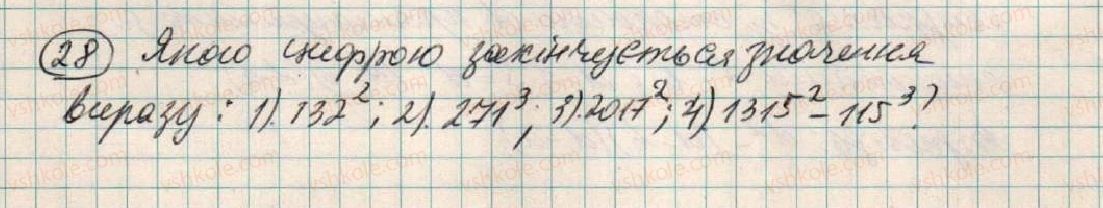 28 Якою цифрою закінчується значення
виразу: 1). 132²; 2). 271³; 3). 2017²; 4) 1315² - 115³?